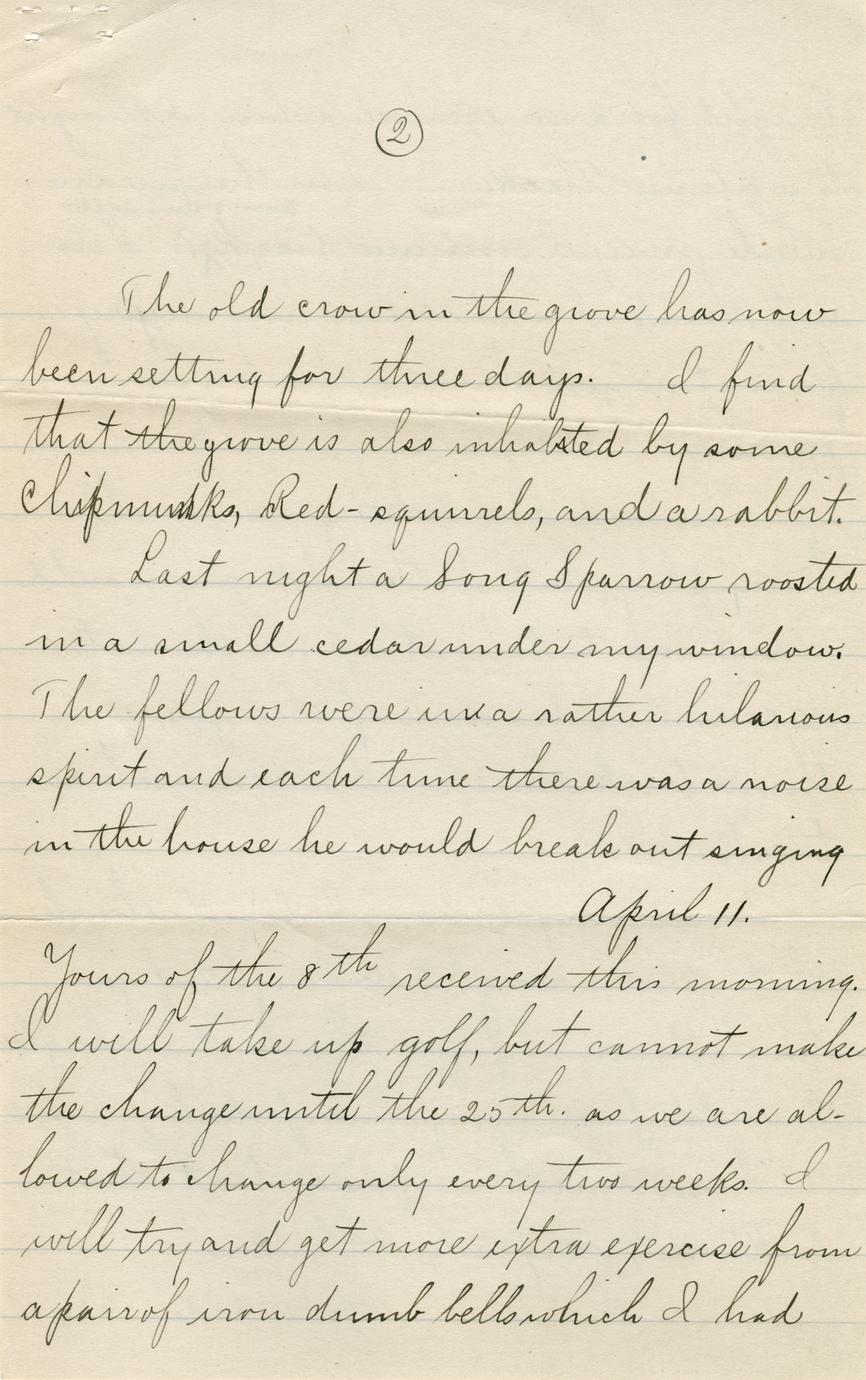 2
The old crow in the grove has now
been setting for three days. I find
that the grove is also inhabited by some
Chipmunks, Red-squirrels, and a rabbit.
Last night a Song Sparrow roosted
in a small cedar under my window.
The fellows were in a rather hilarious
spirit and each time there was a noise
in the house he would break out singing
April 11.
Yours of the 8th received this morning.
I will take up golf, but cannot make
the change until the 25th. as we are al-
lowed to change only every two weeks. I
will try and get more extra exercise from
a pair of iron dumb bells which I had